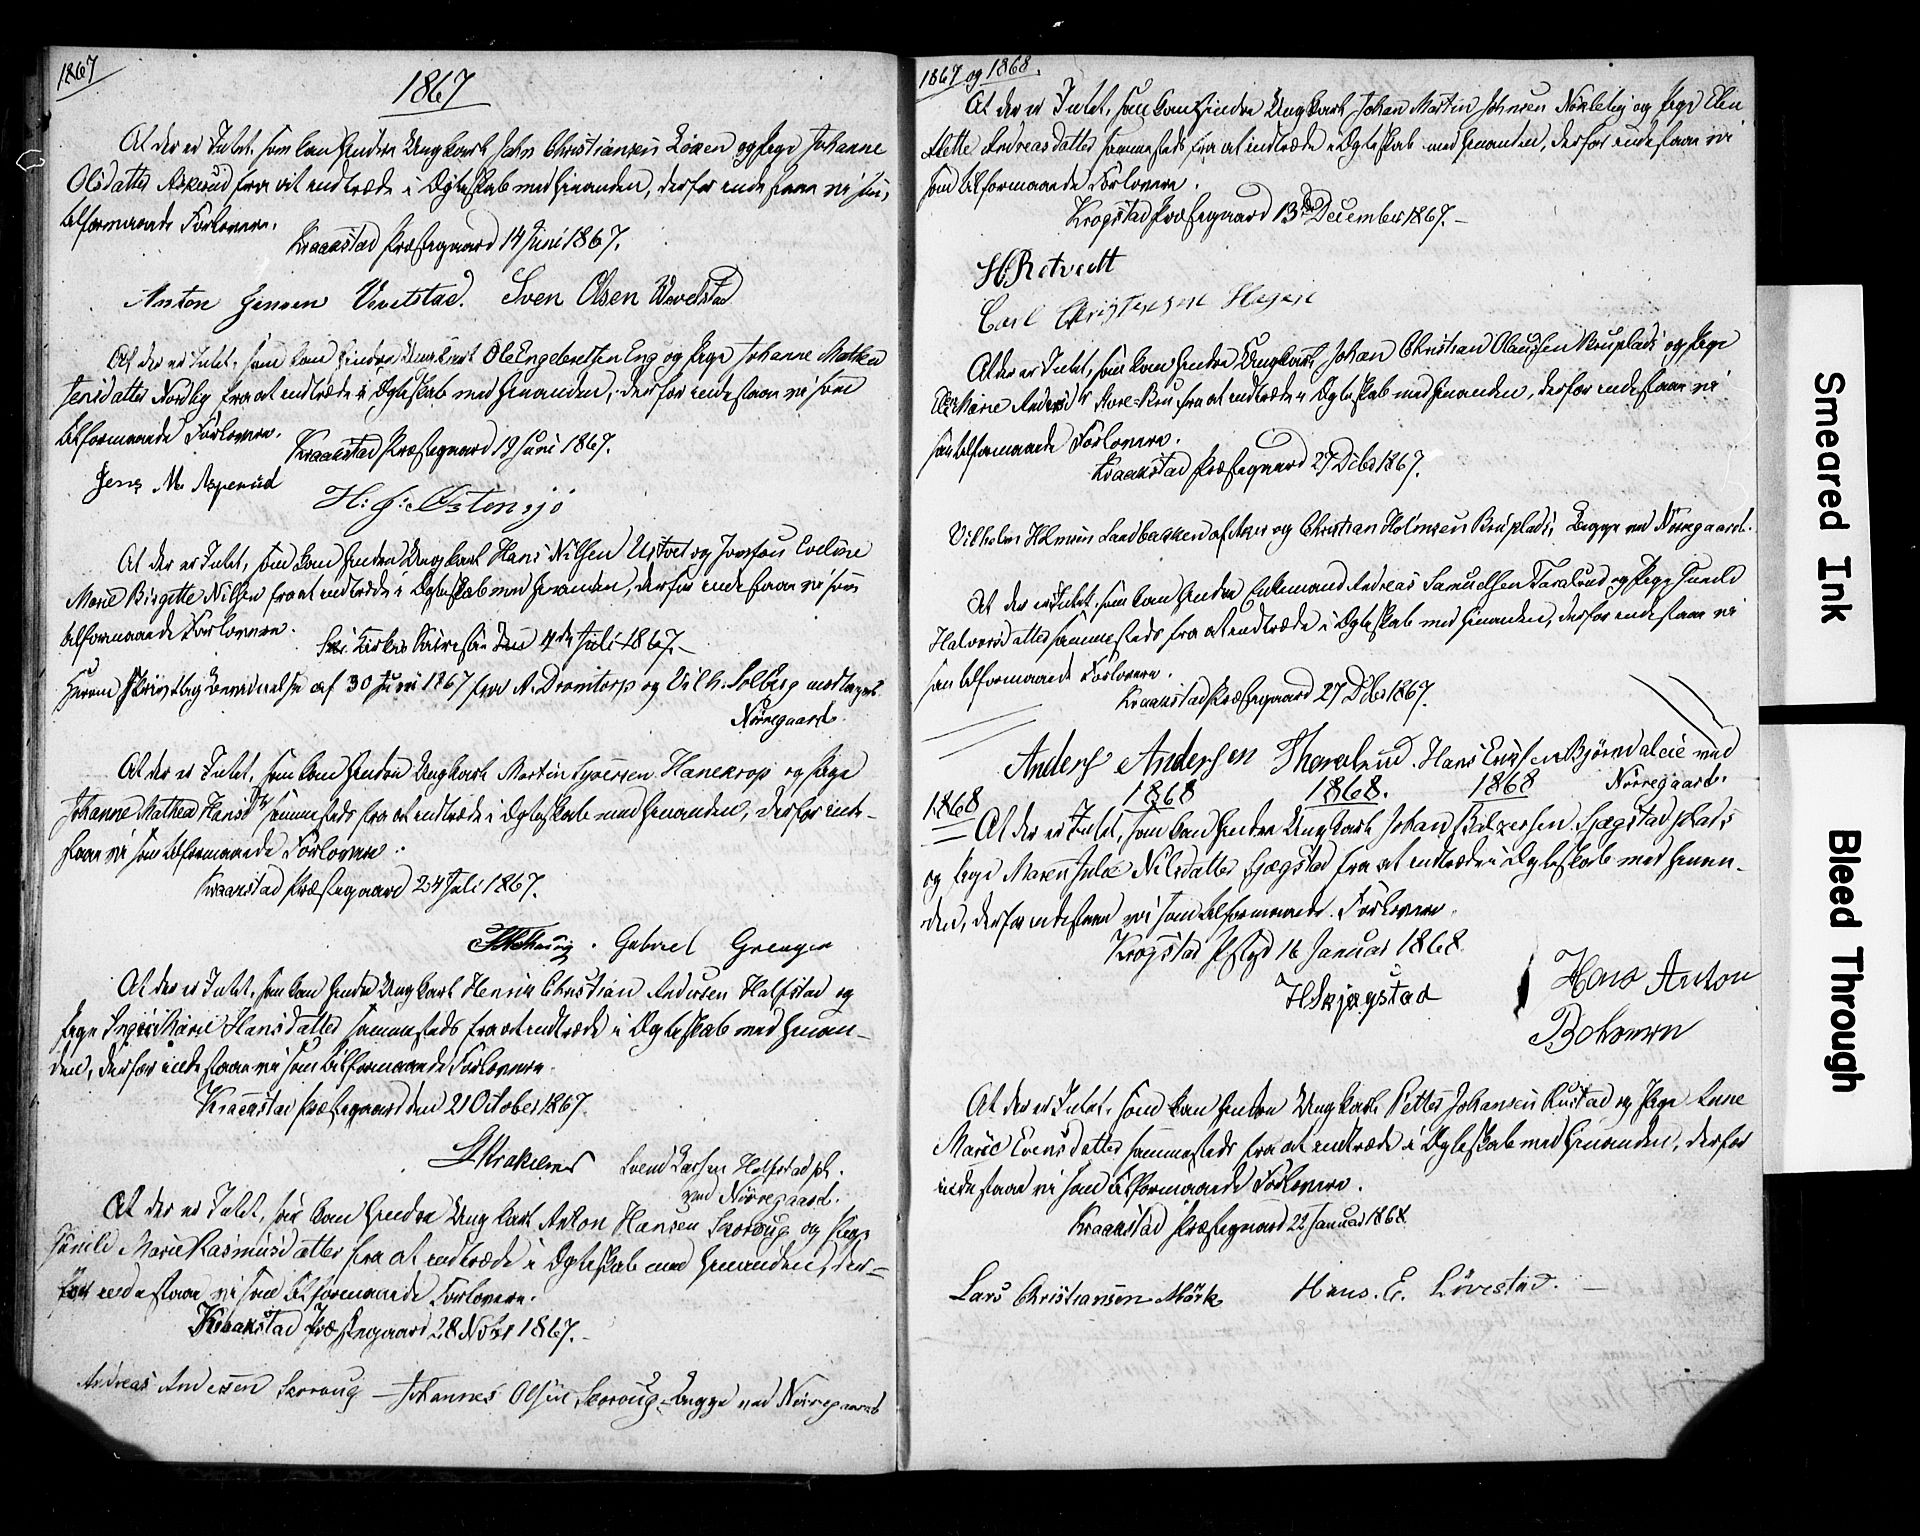 1867
1867
At der er Intet, som kan hindre Ungkarl John Christiansen Løken og Pige Johanne
Olsdatter Askerud fra at indtræde i Ægteskab med hinanden, derfor indestaae vi som
tilformaaende Forlovere.
Kraakstad Præstegaard 14 Juni 1867.
Anton Jensen Vevelstad. Sven Olsen Wevelstad
At der er Intet, som kan hindre Ungkarl Ole Engebretsen Eng og Pige Johanne Mathea
Jensdatter Nordby fra at indtræde i Ægteskab med hinanden, derfor indestaae vi som
tilformaaende Forlovere.
Kraakstad Præstegaard 19 Juni 1867.
Jens M. Asperud
H: J: Østensjø
At der er Intet, som kan hindre Ungkarl Hans Nilsen Ustvet og Jomfru Eveline
Marie Birgitte Nilsen fra at indtræde i Ægteskab med hinanden, derfor indestaae vi som
tilformaaende Forlovere.
Ski Kirkes Sakristie den 4de Juli 1867.
Skriftlig af 30 Juni 1867 fra A. Drømtorp og Vilh. Solberg modtaget.
Nørregaard.
At der er Intet, som kan hindre Ungkarl Martin Hanekrop og Pige
Johanne Mathea Hansdtr sammesteds fra at indtræde i Ægteskab med hinanden, derfor inde-
staae vi som tilformaaende Forlovere.
Kraakstad Præstegaard 24 Juli 1867.
Gabriel
At der er Intet, som kan hindre Ungkarl Henrik Christian Andersen Halfstad og
Pige Marie Hansdatter sammesteds fra at indtræde i Ægteskab med hinan-
den, derfor indestaae vi som tilformaaende Forlovere.
Kraakstad Præstegaard den 21 October 1867.
Svend Larsen Halfstadpl.
ved Nørregaard.
At der er Intet, som kan hindre Ungkarl Anton Hansen Skoroug og Pige
Gunild Marie Rasmusdatter fra at indtræde i Ægteskab med hinanden, der-
for indestaae vi som tilformaaende Forlovere.
Kraakstad Præstegaard 28 Novbr 1867.
Andreas Andersen Skoroug – Johannes Olsen Skoroug – begge ved Nørregaard
1867 og 1868.
At der er Intet, som kan hindre Ungkarl Johan Martin Johnsen Nøkleby og Pige Elen
Mette Andreasdatter sammesteds fra at indtræde i Ægteskab med hinanden, derfor indestaae vi
som tilformaaende Forlovere.
Krogstad Præstegaard 13de December 1867.
H. Retvedt
Carl Christensen
At der er Intet, som kan hindre Ungkarl Johan Christian Olaussen Bruplads og Pige
Marie Andersdtr Store-Bru fra at indtræde i Ægteskab med hinanden, derfor indestaae vi
som tilformaaende Forlovere.
Kraakstad Præstegaard 27 Decbr 1867.
Vilhelm Holmsen Sandbakken af Aas og Christian Holmsen Bruplads, begge ved Nørregaard.
At der er Intet, som kan hindre Enkemand Andreas Samuelsen Taralrud og Pige Gunild
Halvorsdatter sammesteds fra at indtræde i Ægteskab med hinanden, derfor indestaae vi
som tilformaaende Forlovere.
Kraakstad Præstegaard 27 Dcbr 1867.
Anders Andersen Tharalrud. Hans Eriksen Bjørndaleie ved
Nørregaard.
1868 1868 1868. 1868
At der er Intet, som kan hindre Ungkarl Johan Sjægstadplads
og Pige Maren Julie Nilsdatter Sjægstad fra at indtræde i Ægteskab med hinan-
den, derfor indestaae vi som tilformaaende Forlovere.
Krogstad Præstegd 16 Januar 1868.
H Skjægstad
Hans Anton
At der er Intet, som kan hindre Ungkarl Petter Johansen Rustad og Pige Anne
Marie Evensdatter sammesteds fra at indtræde i Ægteskab med hinanden, derfor
indestaae vi som tilformaaende Forlovere.
Kraakstad Præstegaard 22 Januar 1868.
Lars Christiansen Mörk Hans. E. Lövestad.
Smeared Ink
Bleed Through